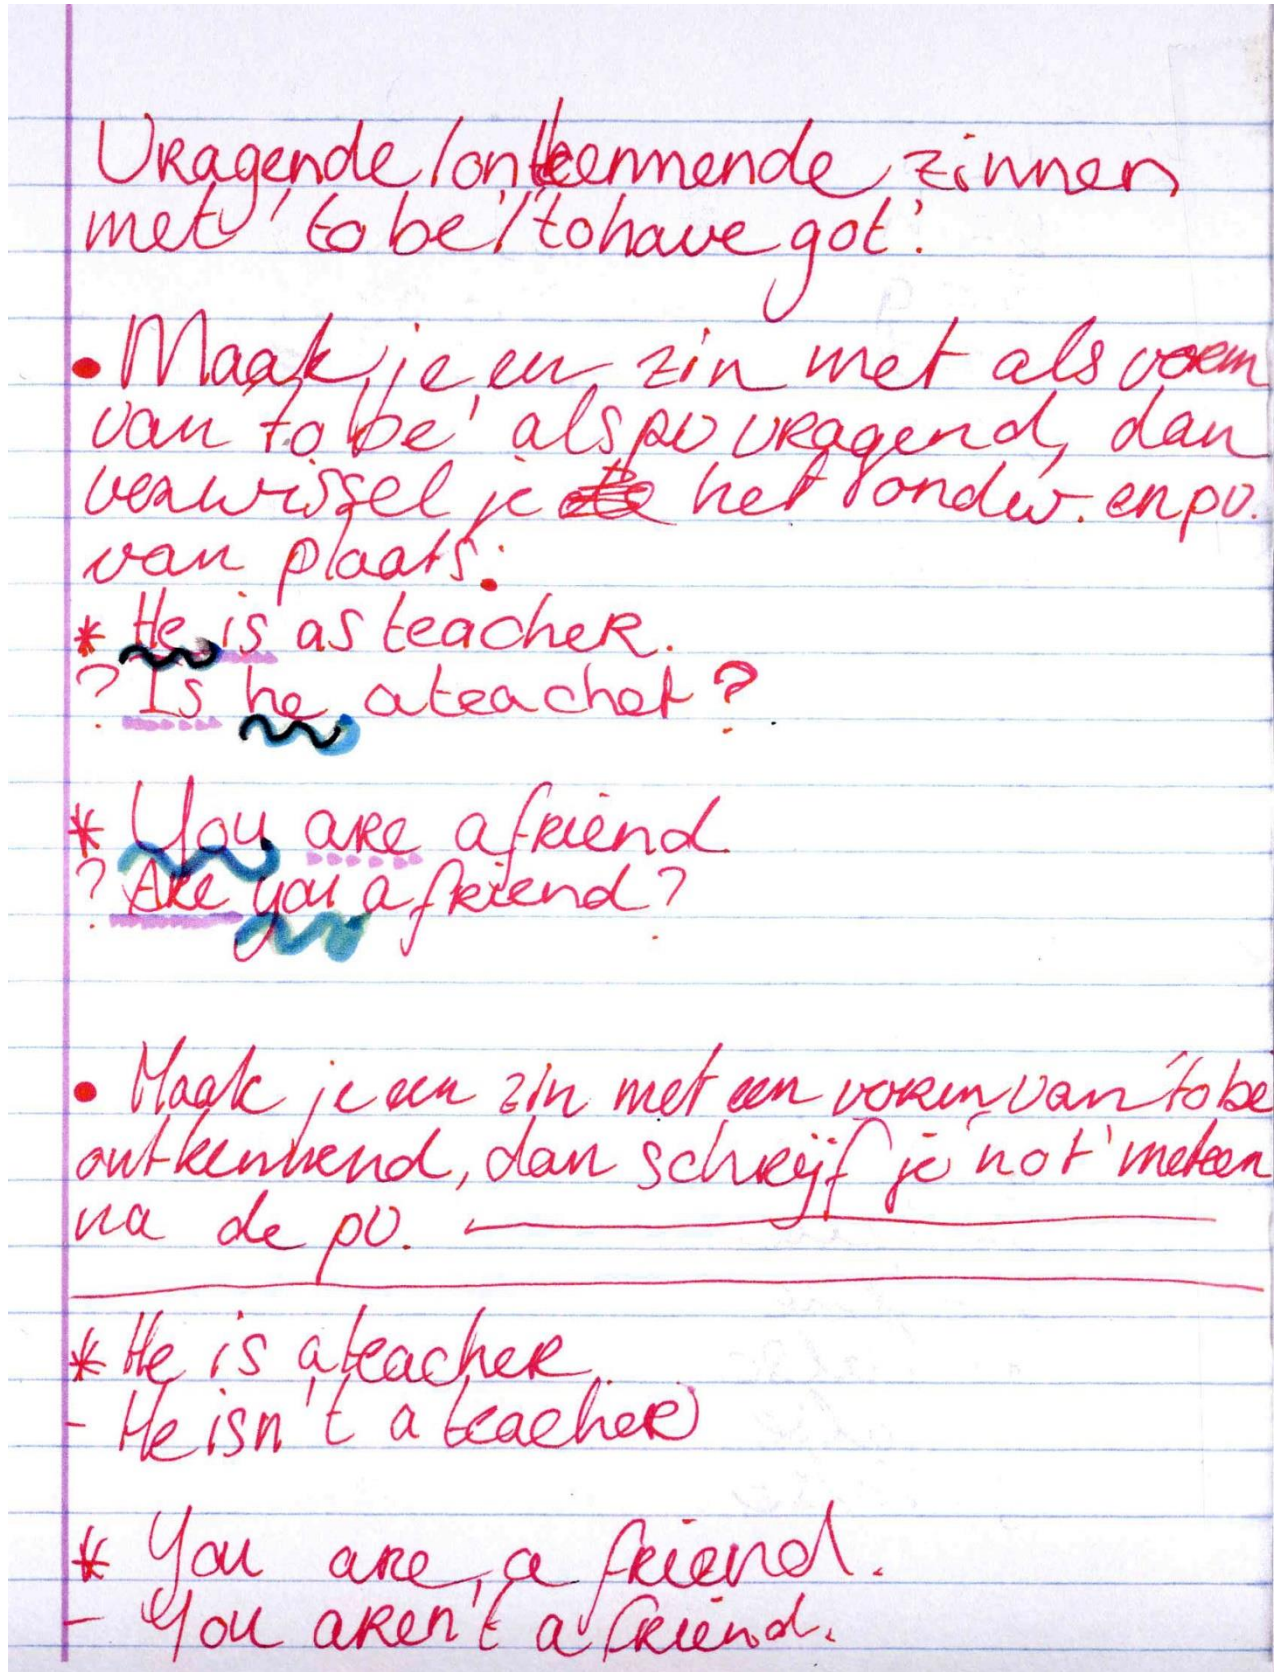 Vragende/ontkennende zinnen
met 'to be'/'to have got'.
• Maak je en zin met als vorm
van to be' als pv vragend, dan
verwissel je het onderw. en pv.
van plaats.
* He is as teacher.
? Is he a teacher?
* You are a friend
? Are you a friend?
• Maak je een zin met een vorem van 'to be
ontkennend, dan schrijf je 'not' meteen
na de pv.
* He is a teacher.
- He isn't a teacher
* You are, a friend.
- You aren't a friend.